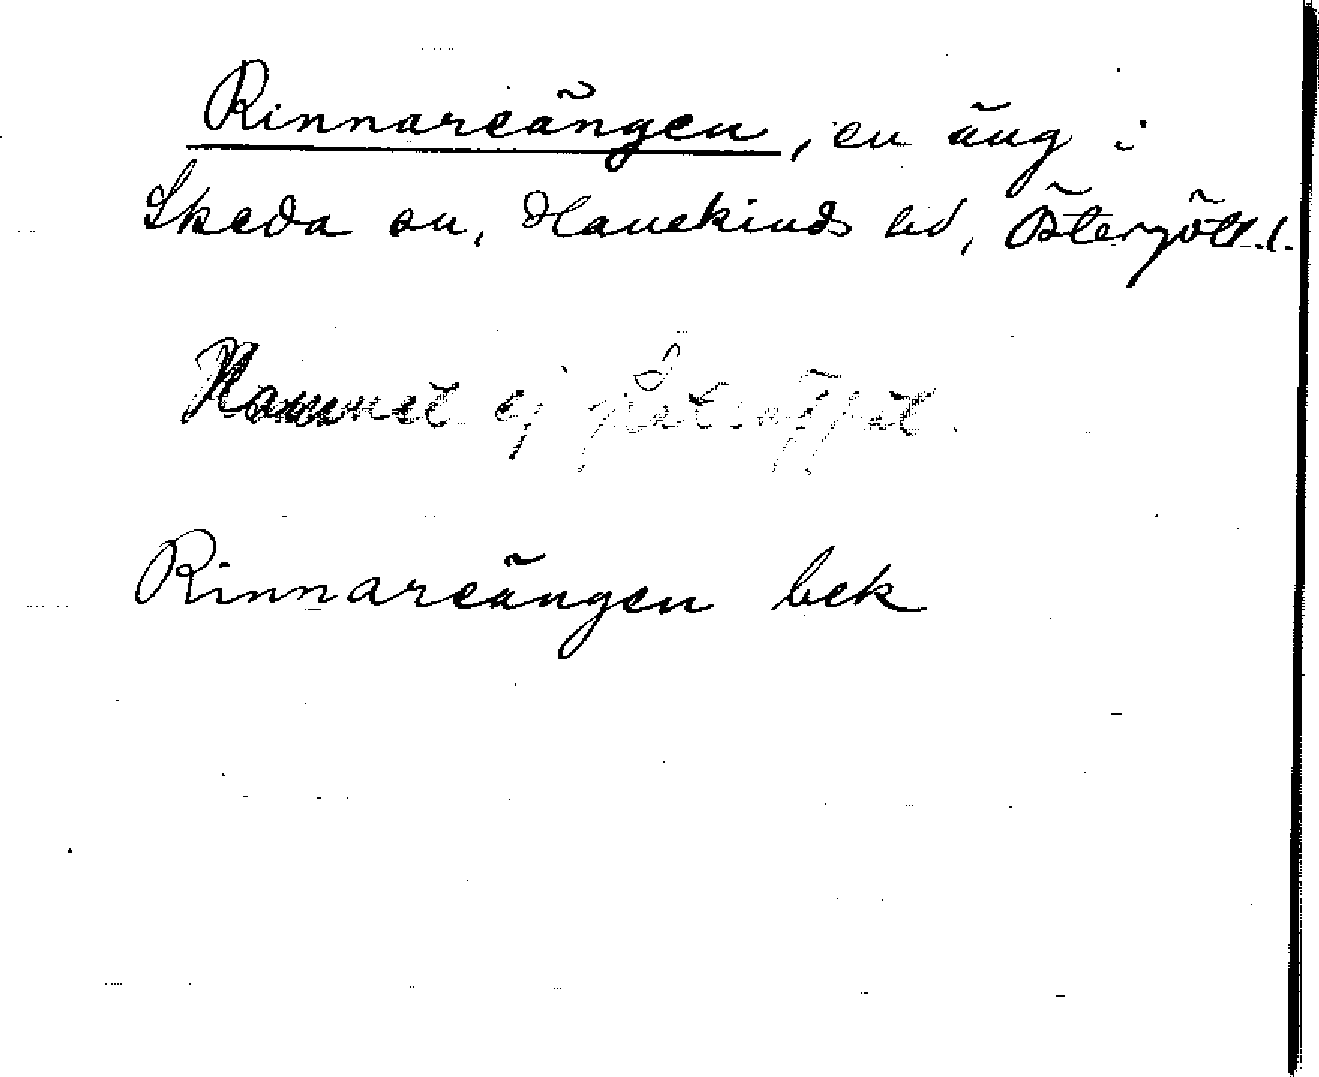 Rinnareängen, en äng i
Skeda sn, Hanekinds hd, Östergötl.l.
Namnet ej påträffat.
Rinnareängen bek